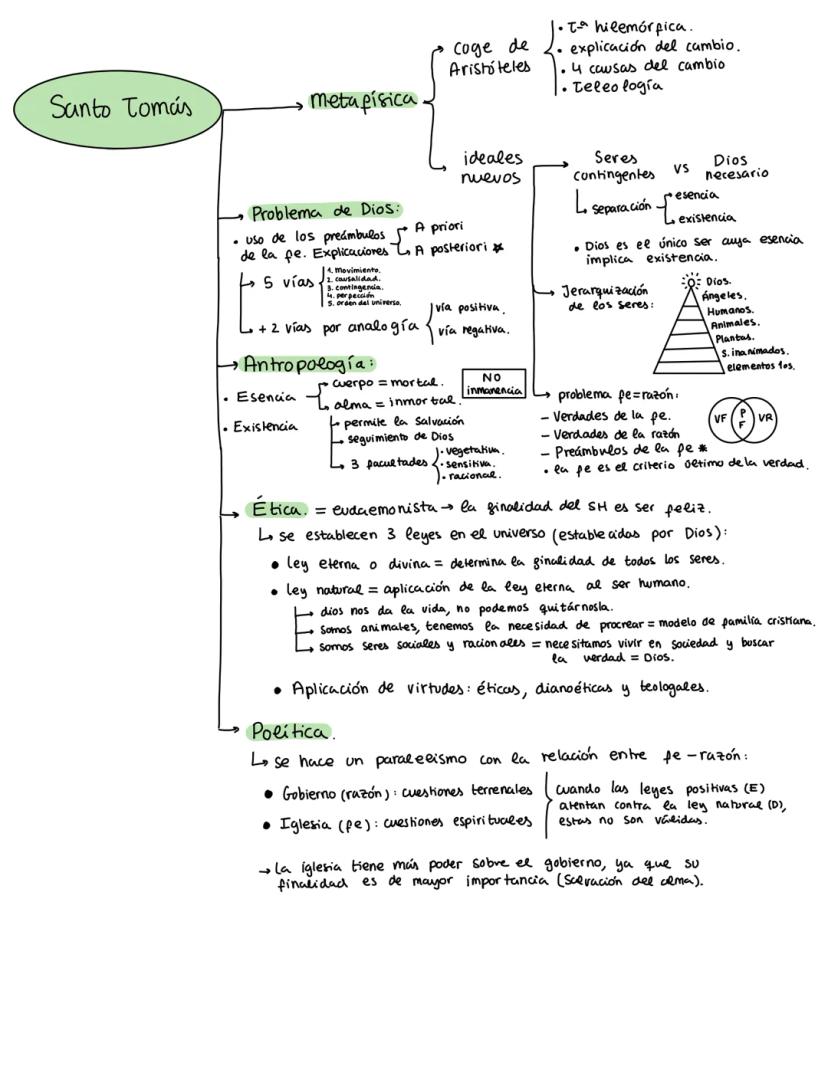 Santo Tomás
metafísica
coge de
Aristóteles
• Tª hilemórfica.
• explicación del cambio.
• 4 causas del cambio
• Teleología
ideales
nuevos
Seres
contingentes
vs
Dios
necesario
separación
esencia
existencia
• Dios es el único ser cuya esencia
implica existencia.
Jerarquización
de los seres:
Dios.
Ángeles.
Humanos.
Animales.
Plantas.
S. inanimados.
elementos 1os.
problema fe=razón:
- Verdades de la fe.
- Verdades de la razón
- Preámbulos de la fe *
• la fe es el criterio último de la verdad.
VF
P
F
VR
Problema de Dios:
• uso de los preámbulos
de la fe. Explicaciones
A priori
A posteriori *
5 vías
1. Movimiento.
2. causalidad.
3. contingencia.
4. perfección
5. orden del universo.
+ 2 vías por analogía
vía positiva.
vía negativa.
Antropología:
• Esencia
cuerpo = mortal.
alma = inmortal.
NO
inmanencia
• Existencia
permite la salvación
seguimiento de Dios
3 facultades
• vegetativa.
• sensitiva.
• racional.
Ética. = eudaemonista → la finalidad del SH es ser feliz.
↳ se establecen 3 leyes en el universo (establecidas por Dios):
• ley eterna o divina = determina la finalidad de todos los seres.
• ley natural = aplicación de la ley eterna al ser humano.
→ dios nos da la vida, no podemos quitárnosla.
→ somos animales, tenemos la necesidad de procrear = modelo de familia cristiana.
→ somos seres sociales y racionales = necesitamos vivir en sociedad y buscar
la verdad = Dios.
• Aplicación de virtudes: éticas, dianoéticas y teologales.
Política.
↳ se hace un paralelismo con la relación entre fe - razón:
• Gobierno (razón): cuestiones terrenales
• Iglesia (fe): cuestiones espirituales
cuando las leyes positivas (E)
atentan contra la ley natural (D),
estas no son válidas.
→ La iglesia tiene más poder sobre el gobierno, ya que su
finalidad es de mayor importancia (Salvación del alma).